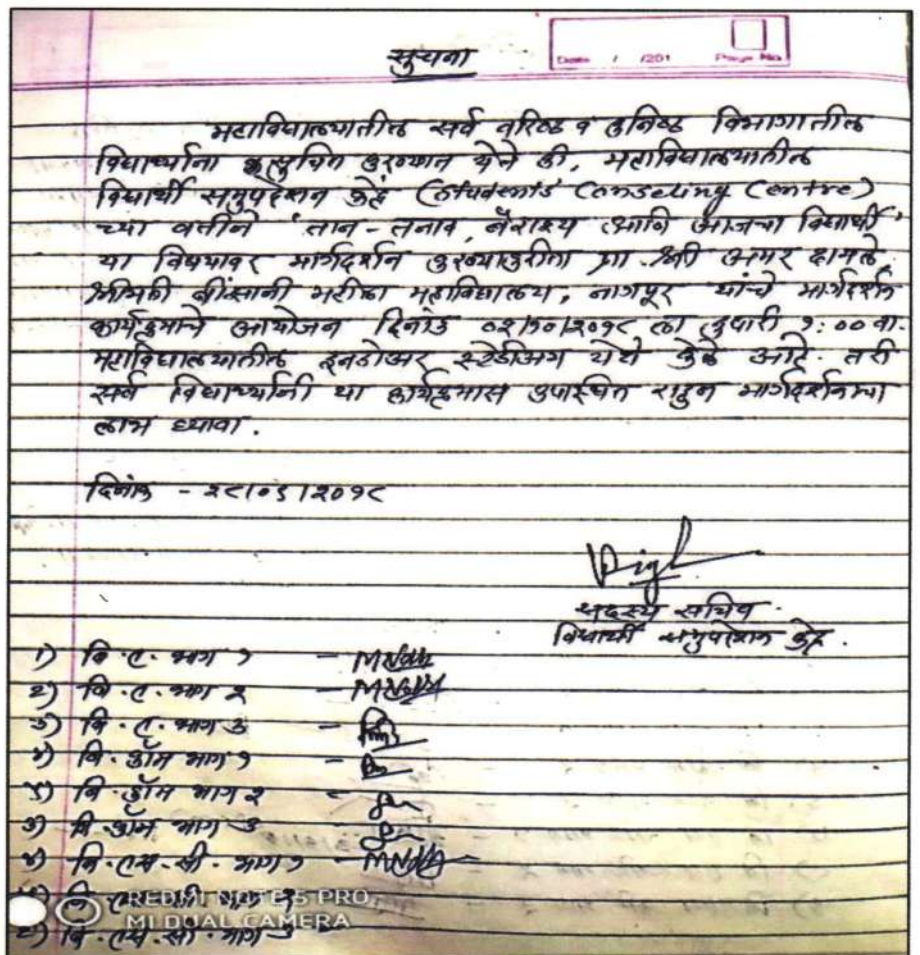 सुचना
Date / /201 Page No.
महाविद्यालयातील सर्व वरिष्ठ व कनिष्ठ विभागातील
विद्यार्थ्यांना सुचित करण्यात येते की, महाविद्यालयातील
विद्यार्थी समुपदेशन केंद्र (Students Conseling Centre)
च्या वतीने 'तान-तनाव, नैराश्य आणि आजचा विद्यार्थी'
या विषयावर मार्गदर्शन करण्याकरीता प्रा. श्री अमर दामले
श्रीमती बींझानी महीला महाविद्यालय, नागपूर यांचे मार्गदर्शन
कार्यक्रमाचे आयोजन दिनांक ०२/१०/२०१८ ला दुपारी १:०० वा.
महाविद्यालयातील इनडोअर स्टेडीअम येथे केले आहे. तरी
सर्व विद्यार्थ्यांनी या कार्यक्रमास उपास्थित राहुन मार्गदर्शनाचा
लाभ घ्यावा.
दिनांक - २८/०९/२०१८
सदस्य सचिव
विद्यार्थी समुपदेशन केंद्र.
१) बि.ए. भाग १ -
२) बि.ए. भाग २ -
३) बि.ए. भाग ३ -
४) बि.कॉम भाग १ -
५) बि.कॉम भाग २ -
६) बि.कॉम भाग ३ -
७) बि.एस.सी. भाग १ -
बि.एस.सी. भाग २
९) बि.एस.सी. भाग ३
REDMI NOTE 5 PRO
MI DUAL CAMERA